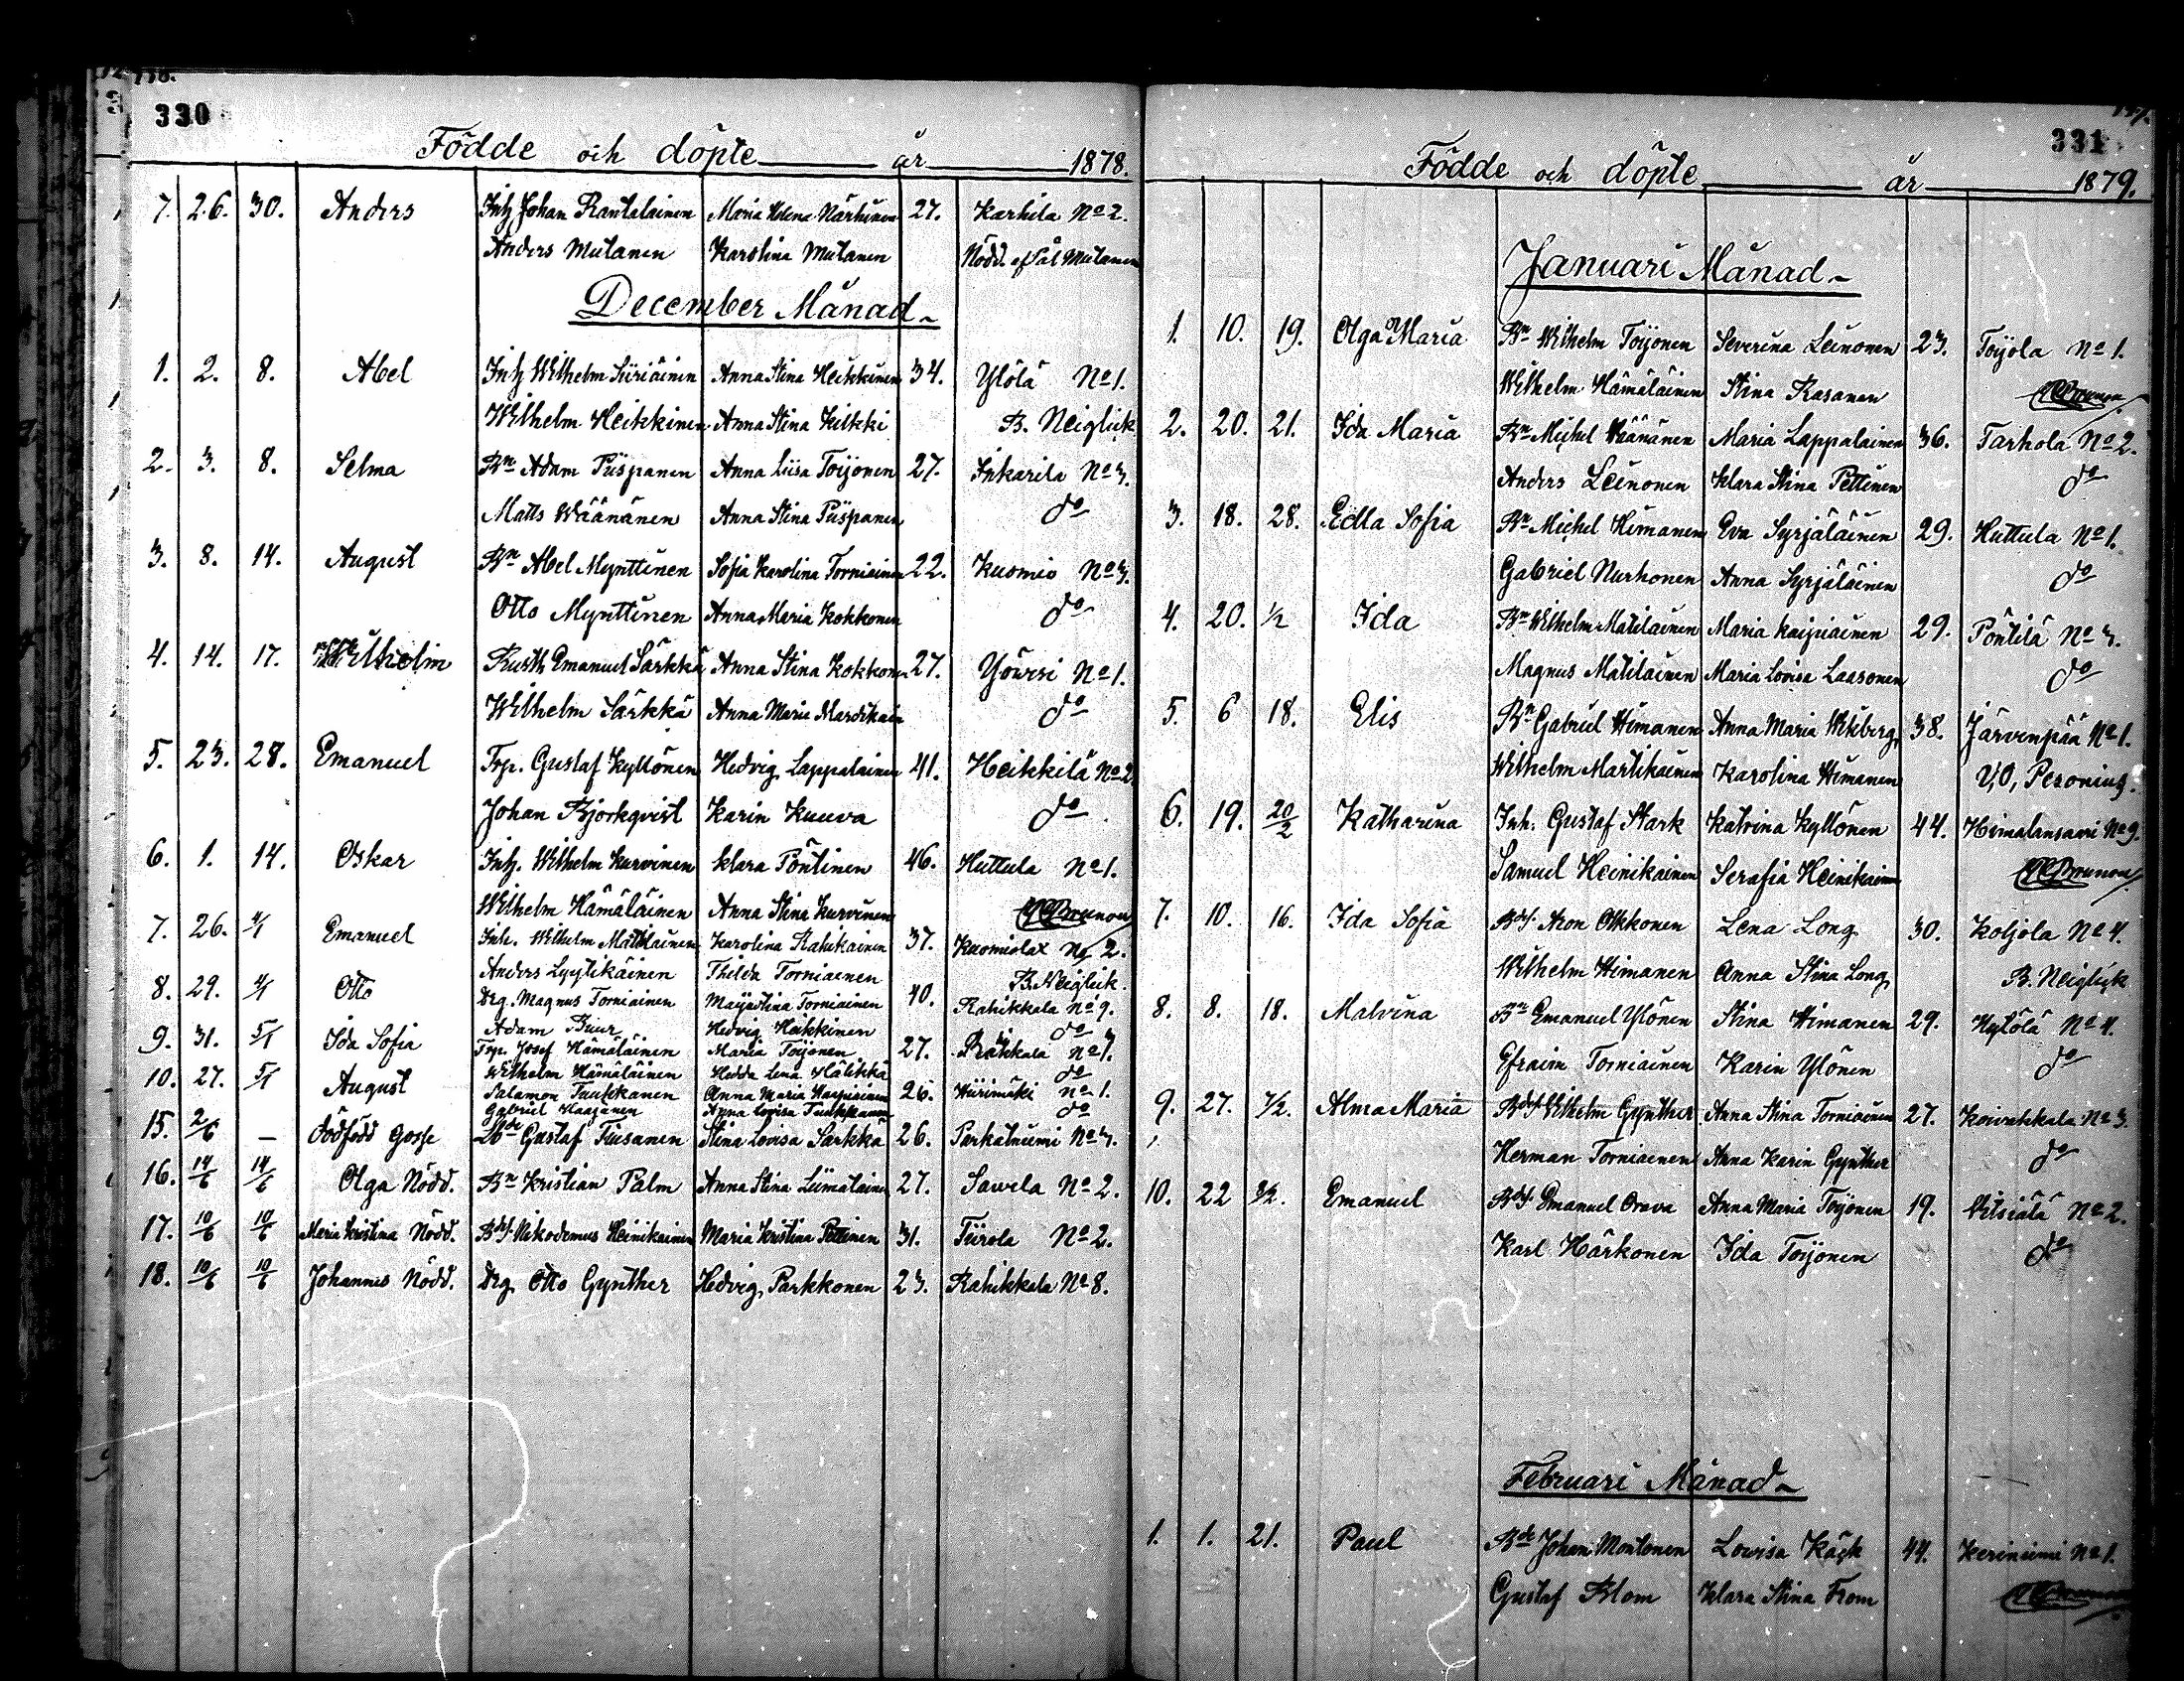 330
Födde och döpte år 1878.
7. 26. 30. Anders Inh Johan Rantalainen Maria Helena Närhinen 27. Karhila No 2.
Anders Mutanen Karolina Mutanen Nödd. af Mutanen
December Månad
1. 2. 8. Abel Inh Wilhelm Siiriäinen Anna Stina Heikkinen 34. Ylölä No 1.
Wilhelm Heikkinen Anna Stina Kilkki B. Neiglick
2. 3. 8. Selma Bn Adam Piispanen Anna Liisa Toijonen 27. Inkarila No 3.
Matts Wäänänen Anna Stina Piispanen do
3. 8. 14. August Bn Abel Mynttinen Sofia Karolina Torniainen 22. Kuomio No 3.
Otto Mynttinen Anna Maria Kokkonen do
4. 14. 17. Wilhelm Emanuel Särkkä Anna Stina Kokkonen 27. No 1.
Wilhelm Särkkä Anna Maria do
5. 23. 28. Emanuel Trp. Gustaf Kyllönen Hedvig Lappalainen 41. Heikkilä No 2
Johan Björkqvist Karin Kuuva do
6. 1. 14. Oskar Inh. Wilhelm Kurvinen Klara Pöntinen 46. Huttula No 1.
Wilhelm Hämäläinen Anna Stina Kurvinen
7. 26. 4/1 Emanuel Inh. Wilhelm Matilainen Karolina Rahikainen 37. Kuomiolax No 2.
Anders Lyytikäinen Thilda Torniainen B. Neiglick.
8. 29. 4/1 Otto Drg. Magnus Torniainen Maijastina Torniainen 40. Rahikkala No 9.
Adam Hedvig Heikkinen do
9. 31. 5/1 Ida Sofia Trp. Josef Hämäläinen Maria Toijonen 27.
Wilhelm Hämäläinen Hedda Lena do
10. 27. 5/1 August Salamon Tuukkanen Anna Maria 26. Hiirimäki No 1.
Gabriel Anna Lovisa Tuukkanen do
15. 2/6 — Dödfödd Gosse Gustaf Tiusanen Stina Lovisa Särkkä 26. Parkatniemi No 3.
16. 14/6 14/6 Olga Nödd. Bn Kristian Palm Anna Stina Liimatainen 27. Sawela No 2.
17. 10/6 10/6 Maria Kristina Nödd. Nikodemus Heinikainen Maria Kristina Pettinen 31. Tiirola No 2.
18. 10/6 10/6 Johannes Nödd. Drg Otto Gynther Hedvig Parkkonen 23. Rahikkala No 8.
331
Födde och döpte år 1879.
Januari Månad
1. 10. 19. Olga Maria Bn Wilhelm Toijonen Severina Leinonen 23. Toijola No 1.
Wilhelm Hämäläinen Stina Rasanen
2. 20. 21. Ida Maria Bn Michel Wäänänen Maria Lappalainen 36. Tarhola No 2.
Anders Leinonen Klara Stina Pettinen do
3. 18. 28. Edla Sofia Bn Michel Himanen Eva Syrjäläinen 29. Huttula No 1.
Gabriel Nurhonen Anna Syrjäläinen do
4. 20. 1/2 Ida Bn Wilhelm Matilainen Maria Kaipiainen 29. Pöntilä No 3.
Magnus Matilainen Maria Lovisa Laasonen do
5. 6 18. Elis Bn Gabriel Himanen Anna Maria Wikberg 38. Järvenpää No 1.
Wilhelm Martikainen Karolina Himanen V, O, Pesonius.
6. 19. 20/2 Katharina Inh. Gustaf Stark Katrina Kyllönen 44. Himalansaari No 9.
Samuel Heinikainen Serafia Heinikainen
7. 10. 16. Ida Sofia Aron Okkonen Lena Long 30. Koljola No 4.
Wilhelm Himanen Anna Stina Long B. Neiglick
8. 8. 18. Malvina Bn Emanuel Ylönen Stina Himanen 29. Hylölä No 4.
Efraim Torniainen Karin Ylönen do
9. 27. 7/2. Alma Maria Wilhelm Gynther Anna Stina Torniainen 27. Koivakkala No 3.
Herman Torniainen Anna Karin Gynther do
10. 22 2/2. Emanuel Emanuel Orava Anna Maria Toijonen 19. Vitsiälä No 2.
Karl Härkonen Ida Toijonen do
Februari Månad
1. 1. 21. Paul Johan Montonen Lowisa Käck 44. Keriniemi No 1.
Gustaf Blom Klara Stina From